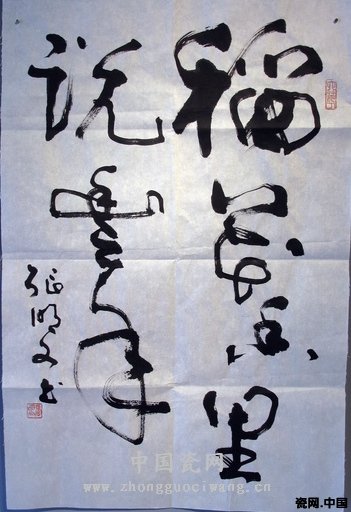 稻花香里
说豐年
文书
中国瓷网
www.zhongguociwang.cn
瓷网.中国